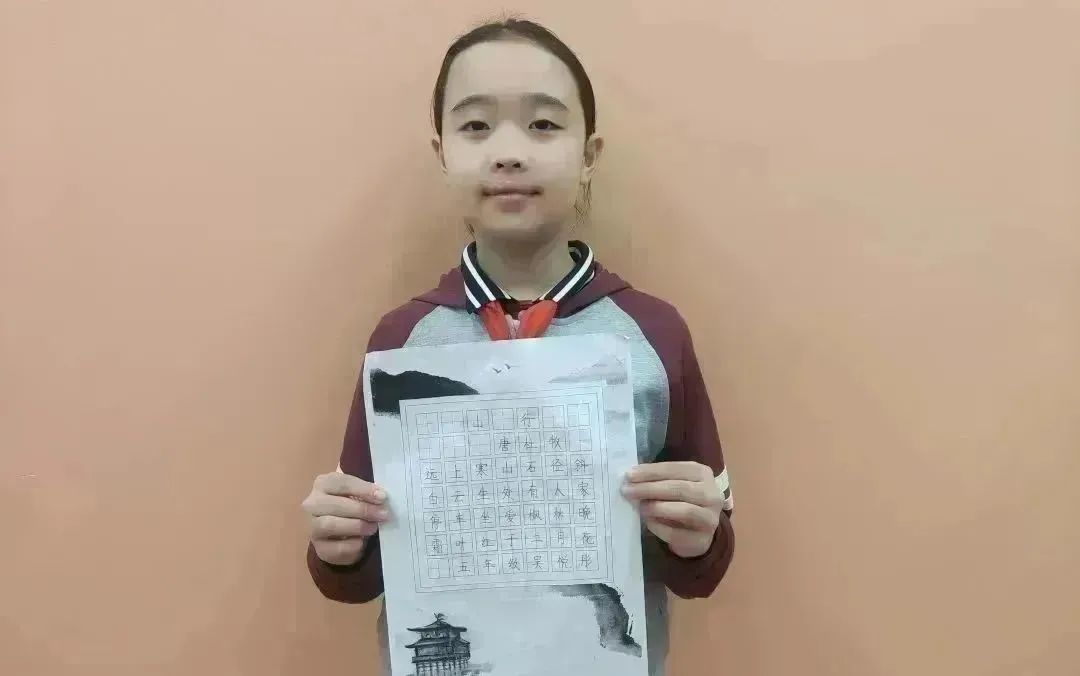 山行
唐杜牧
远上寒山石径斜
白云生处有人家
停车坐爱枫林晚
霜叶红于二月花
五年级吴悦彤